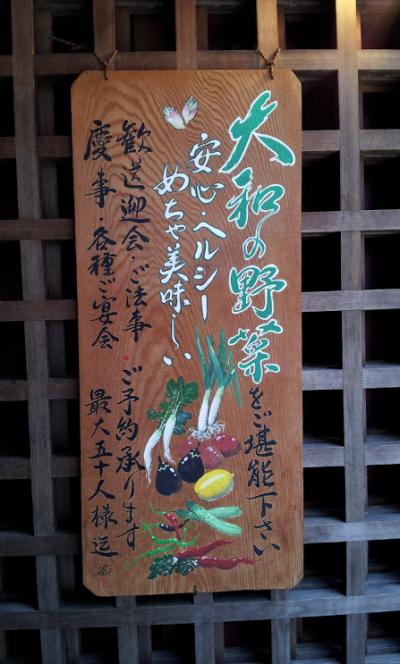 大和の野菜をご堪能下さい
安心・ヘルシー
めちゃ美味しい
歓送迎会・ご法事・ご予約承ります
慶事・各種ご宴会 最大五十人様迄